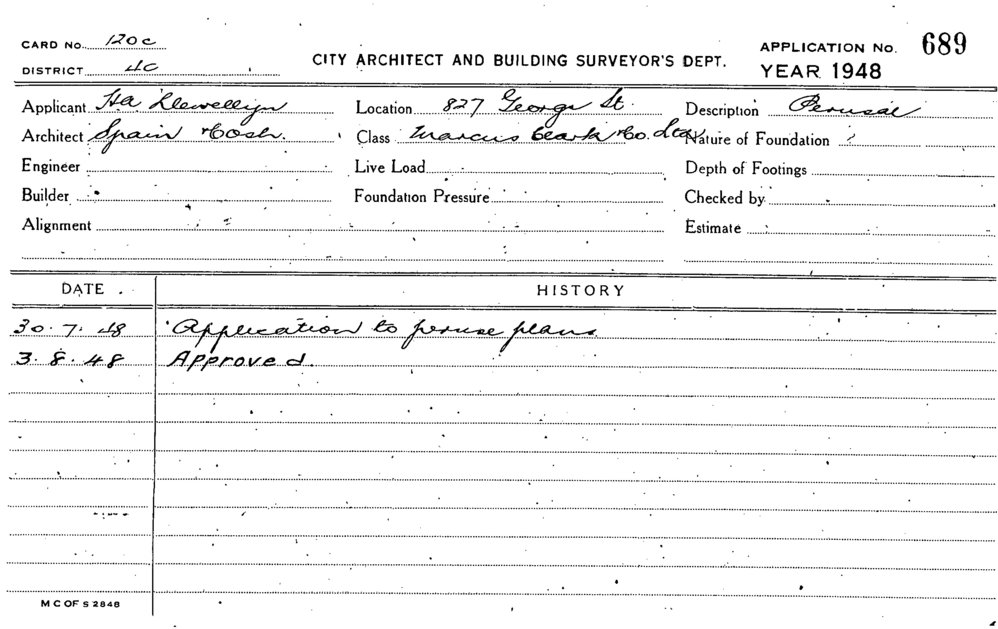 CARD No. 120c
DISTRICT 4C
CITY ARCHITECT AND BUILDING SURVEYOR'S DEPT.
APPLICATION No. 689
YEAR 1948
Applicant Llewellyn Location 827 George St. Description Perusal
Architect Spain & Cosh. Class Marcus Clark & Co. Ltd Nature of Foundation
Engineer Live Load Depth of Footings
Builder Foundation Pressure Checked by
Alignment Estimate
DATE HISTORY
30.7.48 Application to peruse plans
3.8.48 Approved.
M C OF S 2848